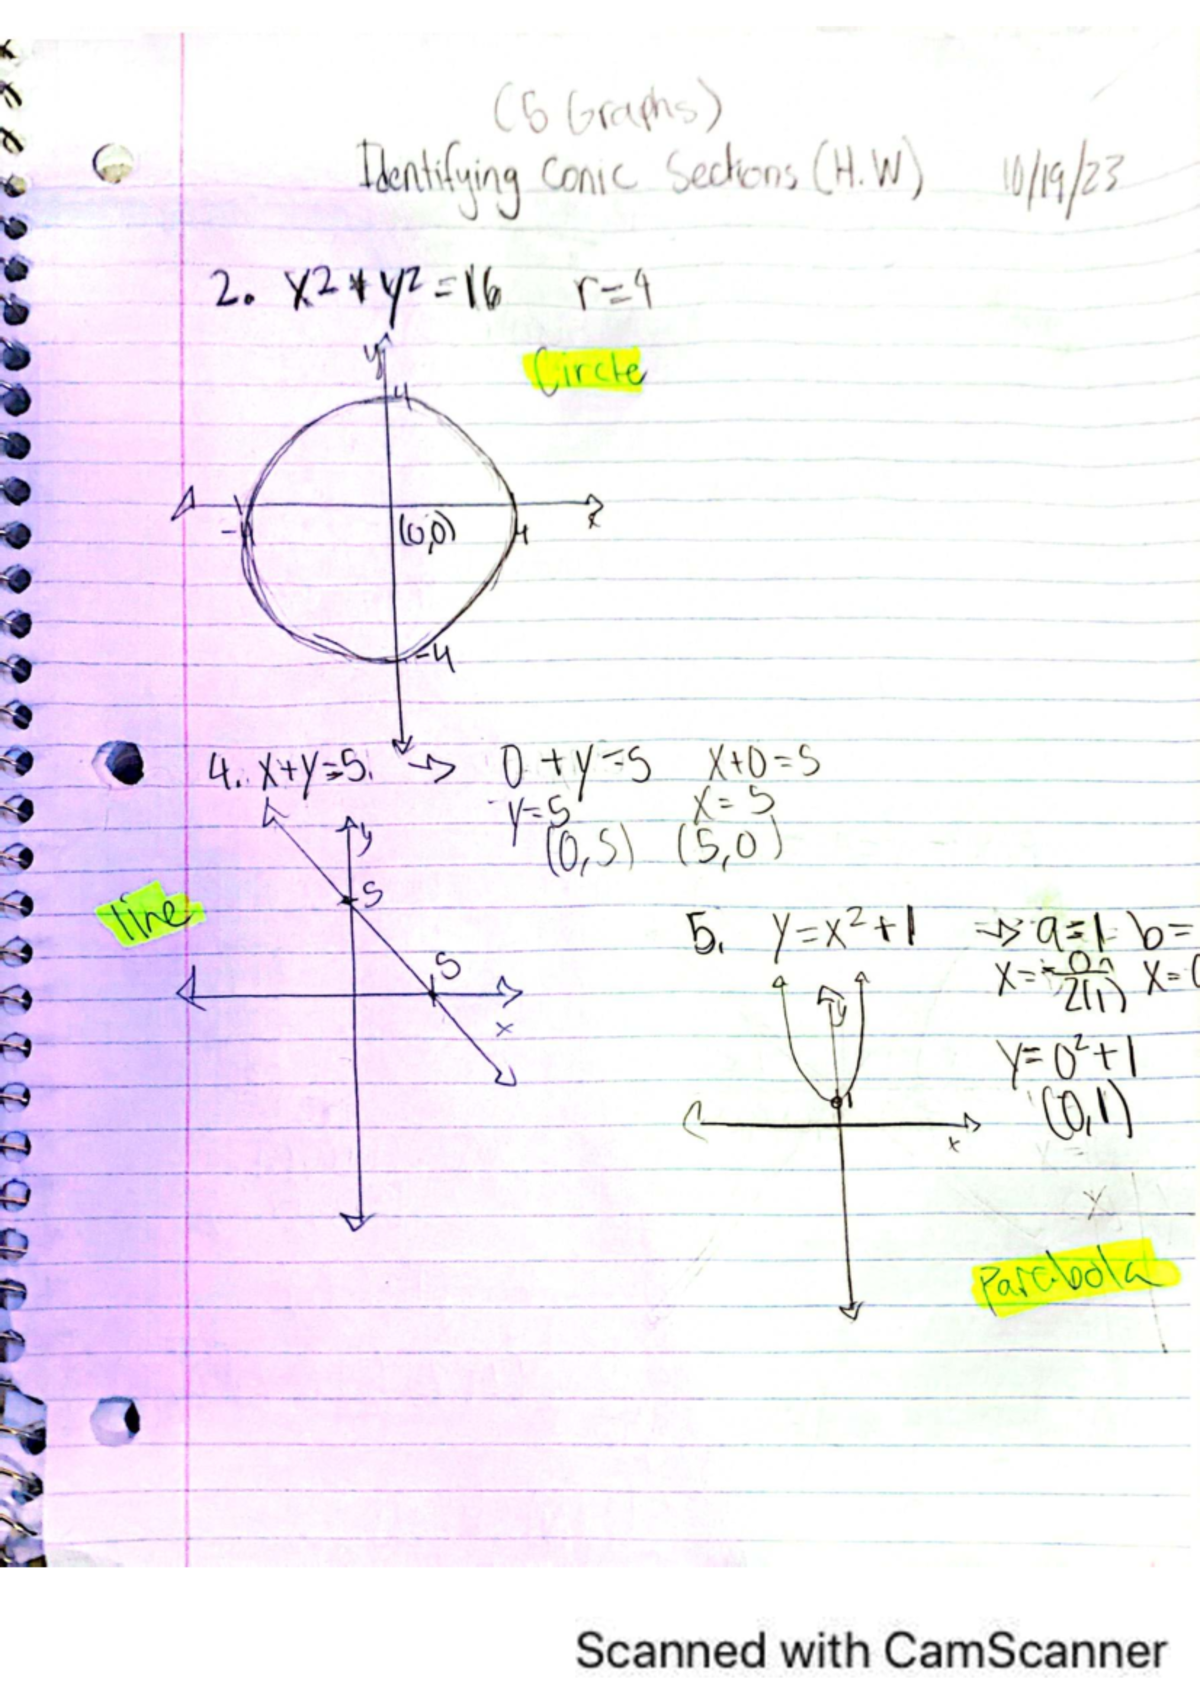 (5 Graphs)
Identifying Conic Sections (H.W) 10/19/23
2. x2 + y2 = 16 r=4
Circle
y
4
-4 (0,0) 4 x
-4
4. x+y=5. → 0+y=5 x+0=5
y=5 x=5
(0,5) (5,0)
y
5
line
5
x
5. y=x²+1 → a=1 b=
x=-0/2(1) x=0
y
y=0²+1
1 (0,1)
x
x
Parabola
Scanned with CamScanner